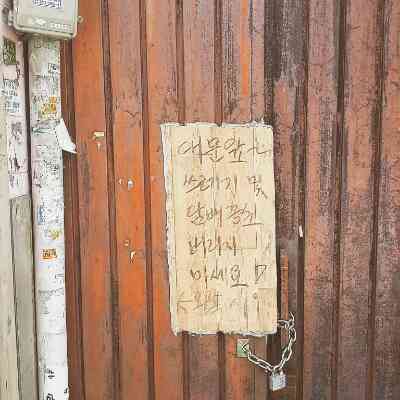 대문앞
쓰레기 및
담배꽁초
버리지
마세요